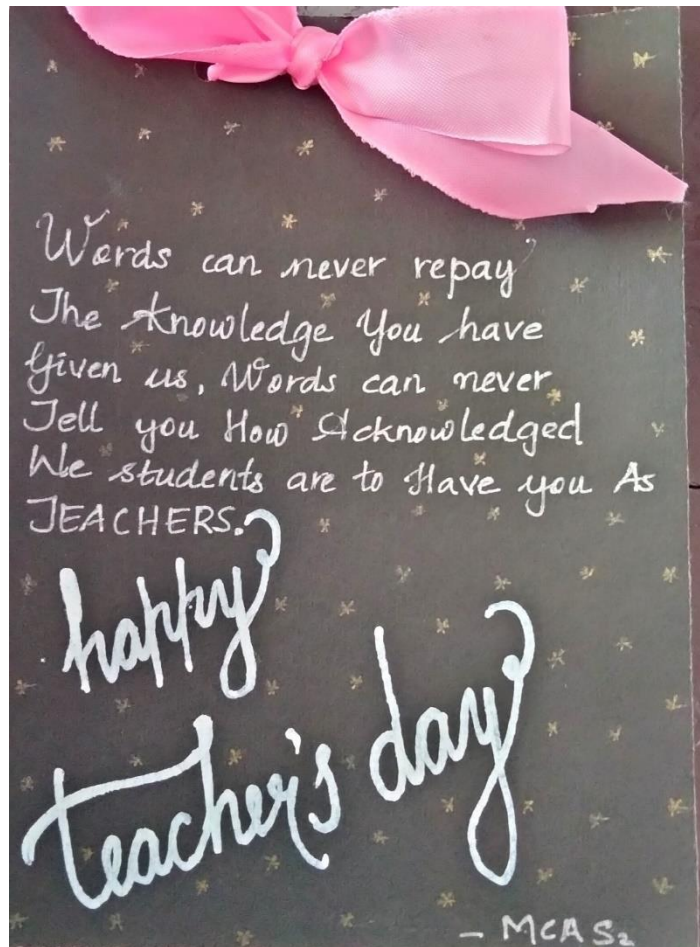 Words can never repay
The Knowledge You have
Given us, Words can never
Tell you How Acknowledged
We students are to Have you As
TEACHERS.
happy
teacher's day
- MCA S2